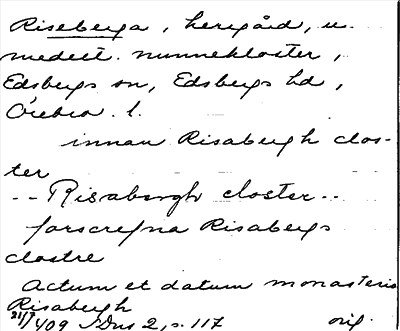 Riseberga, herrgård, u.
medelt. nunnekloster,
Edsbergs sn, Edsbergs hd,
Örebro l.
innan Risabergh clos-
ter
-- Risabergh closter --
forscrefna Risabergs
clostre
Actum et datum monasterio
Risabergh
21/7 1409 SDns 2, s. 117 orig.